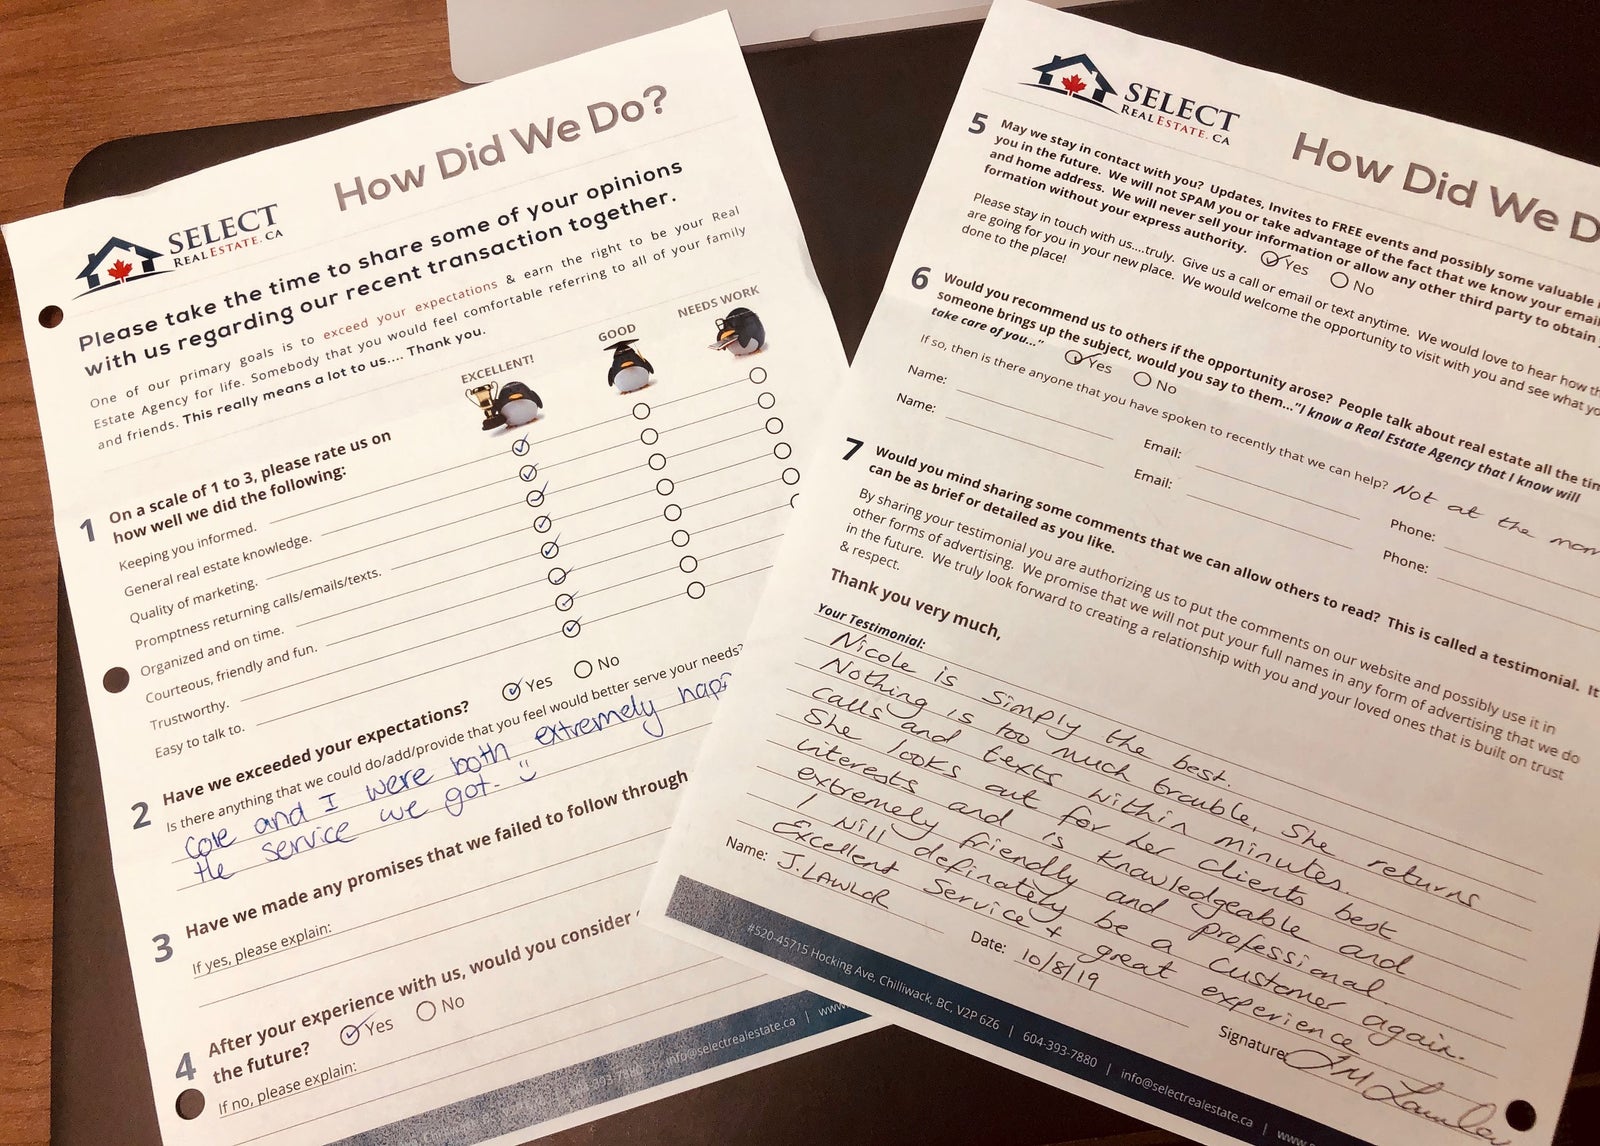 SELECT
REALESTATE.CA
How Did We Do?
Please take the time to share some of your opinions
with us regarding our recent transaction together.
One of our primary goals is to exceed your expectations & earn the right to be your Real
Estate Agency for life. Somebody that you would feel comfortable referring to all of your family
and friends. This really means a lot to us.... Thank you.
EXCELLENT!
GOOD
NEEDS WORK
1
On a scale of 1 to 3, please rate us on
how well we did the following:
Keeping you informed.
General real estate knowledge.
Quality of marketing.
Promptness returning calls/emails/texts.
Organized and on time.
Courteous, friendly and fun.
Trustworthy.
Easy to talk to.
2
Have we exceeded your expectations? Yes No
Is there anything that we could do/add/provide that you feel would better serve your needs?
Cole and I were both extremely
the service we got.
3
Have we made any promises that we failed to follow through
If yes, please explain:
4
After your experience with us, would you consider
the future? Yes No
If no, please explain:
info@selectrealestate.ca | www.
SELECT
REALESTATE.CA
How Did We D
5
May we stay in contact with you? Updates, Invites to FREE events and possibly some valuable
you in the future. We will not SPAM you or take advantage of the fact that we know your email
and home address. We will never sell your information or allow any other third party to obtain
formation without your express authority. Yes No
Please stay in touch with us....truly. Give us a call or email or text anytime. We would love to hear how
are going for you in your new place. We would welcome the opportunity to visit with you and see what
done to the place!
6
Would you recommend us to others if the opportunity arose? People talk about real estate all the
someone brings up the subject, would you say to them..."I know a Real Estate Agency that I know will
take care of you..." Yes No
If so, then is there anyone that you have spoken to recently that we can help? Not at the
Name: Email: Phone:
Name: Email: Phone:
7
Would you mind sharing some comments that we can allow others to read? This is called a testimonial. It
can be as brief or detailed as you like.
By sharing your testimonial you are authorizing us to put the comments on our website and possibly use it in
other forms of advertising. We promise that we will not put your full names in any form of advertising that we do
in the future. We truly look forward to creating a relationship with you and your loved ones that is built on trust
& respect.
Thank you very much,
Your Testimonial:
Nicole is simply the best.
Nothing is too much trouble, She returns
calls and texts within minutes.
She looks out for her clients best
interests and is knowledgeable and
extremely friendly and professional.
I will definately be a customer again.
Excellent Service + great experience
Name: J. LAWLOR
Date: 10/8/19
Signature:
#520-45715 Hocking Ave, Chilliwack, BC, V2P 6Z6 | 604-393-7880 | info@selectrealestate.ca |